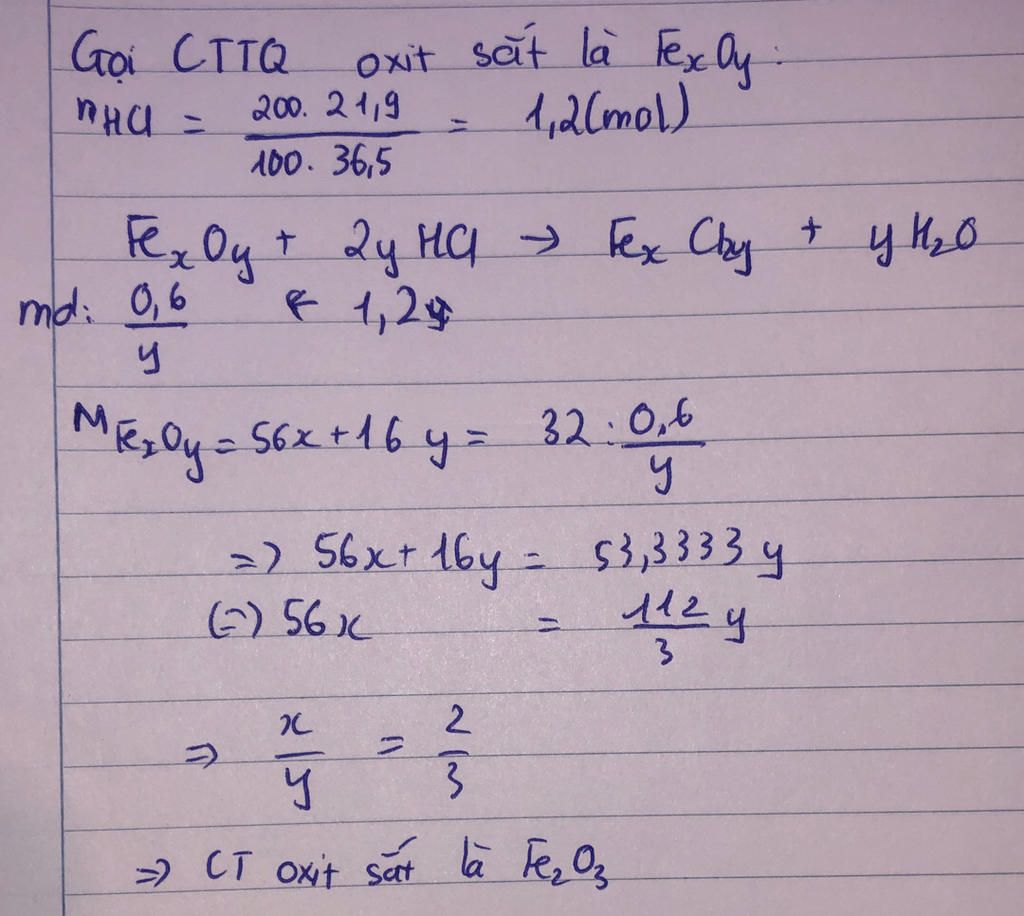 Gọi CTTQ oxit sắt là FexOy:
nHCl = 200. 21,9 / 100. 36,5 = 1,2(mol)
FexOy + 2y HCl → Fex Cl2y + y H2O
mol: 0,6/y ← 1,2
MFexOy = 56x + 16 y = 32 : 0,6/y
=> 56x + 16y = 53,3333 y
(=) 56x = 112/3 y
=> x/y = 2/3
=> CT oxit sắt là Fe2O3